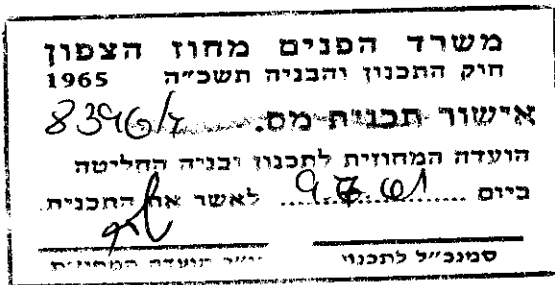 משרד הפנים מחוז הצפון
חוק התכנון והבניה תשכ"ה 1965
אישור תכנית מס. 8396/ג
הועדה המחוזית לתכנון ובניה החליטה
ביום 9.7.01 לאשר את התכנית
סמנכ"ל לתכנון
יו"ר הועדה המחוזית